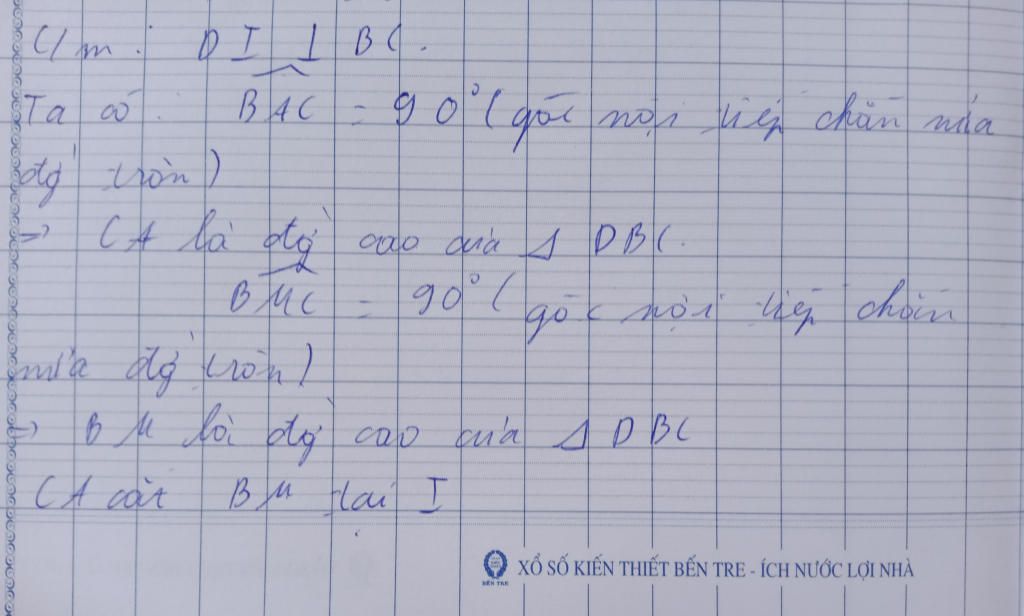 C/m : DI ⊥ BC.
Ta có : BAC = 90° (góc nội tiếp chắn nửa
đg tròn)
=> CA là đg cao của Δ DBC.
BMC = 90° (góc nội tiếp chắn
nửa đg tròn)
=> BM là đg cao của Δ DBC
CA cắt BM tại I
BẾN TRE XỔ SỐ KIẾN THIẾT BẾN TRE - ÍCH NƯỚC LỢI NHÀ